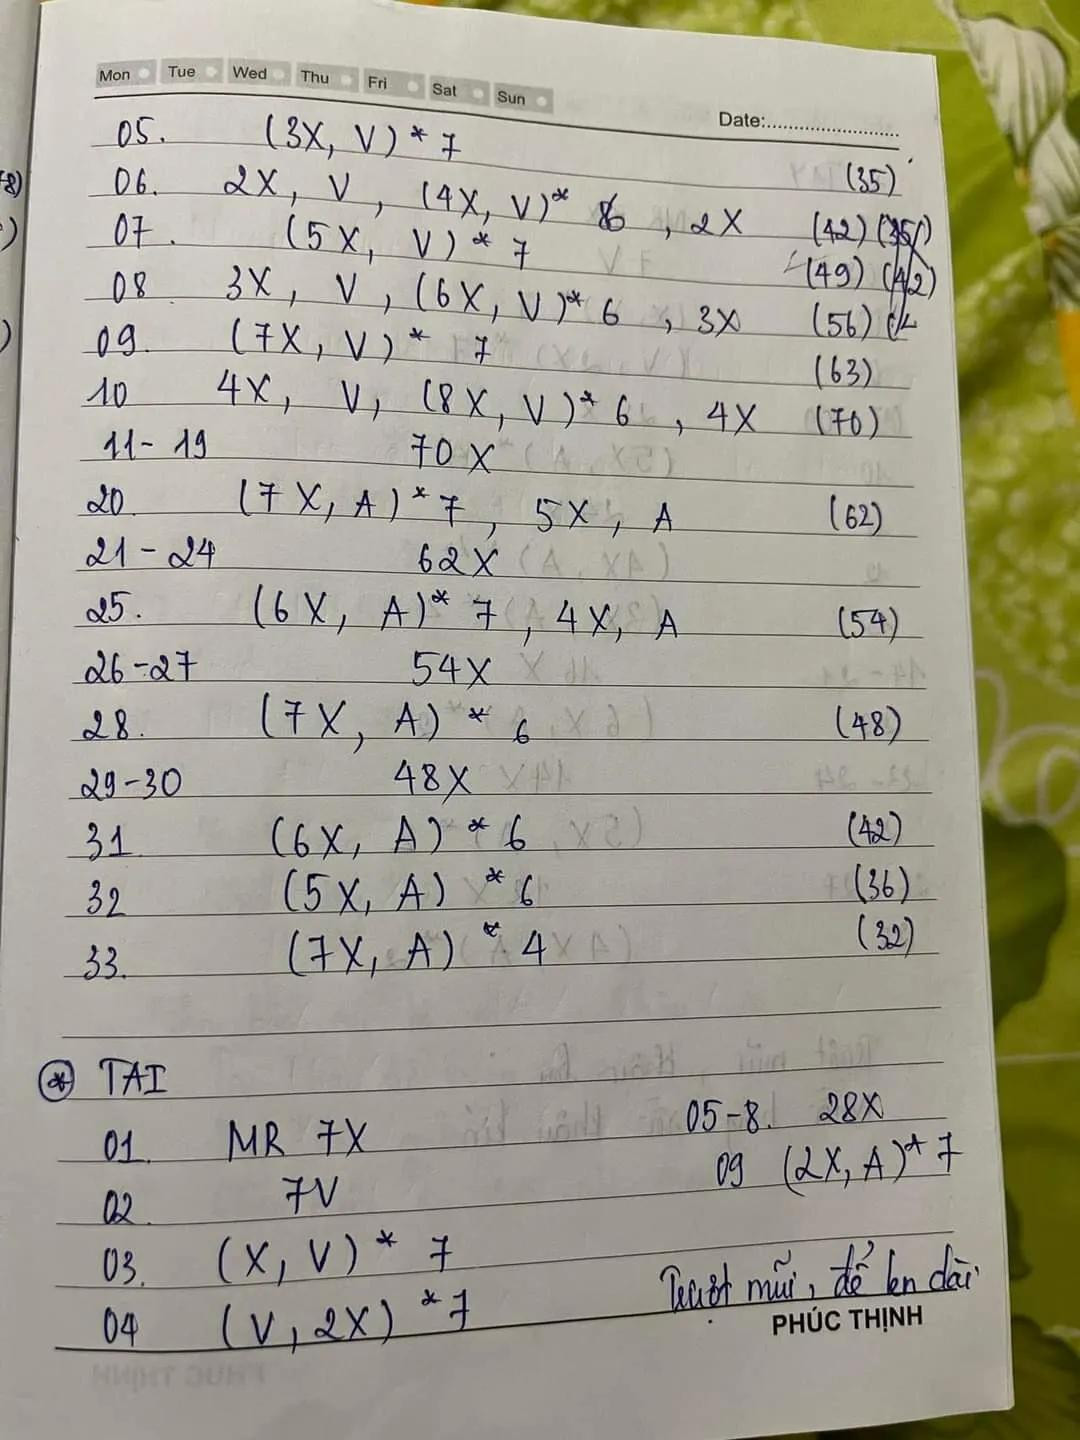 Mon Tue Wed Thu Fri Sat Sun
Date:
05. (3X, V) * 7 (35)
06. 2X, V, (4X, V)* 6, 2X (42) (35)
07. (5X, V) * 7 (49) (42)
08 3X, V, (6X, V)* 6, 3X (56)
09. (7X, V) * 7 (63)
10 4X, V, (8X, V)* 6, 4X (70)
11-19 70X
20. (7X, A)* 7, 5X, A (62)
21-24 62X
25. (6X, A)* 7, 4X, A (54)
26-27 54X
28. (7X, A) * 6 (48)
29-30 48X
31 (6X, A) * 6 (42)
32 (5X, A) * 6 (36)
33. (7X, A) * 4 (32)
* TAI
01. MR 7X
02. 7V
03. (X, V) * 7
04 (V, 2X) * 7
05-8. 28X
09 (2X, A)* 7
mũi, để len dài
PHÚC THỊNH